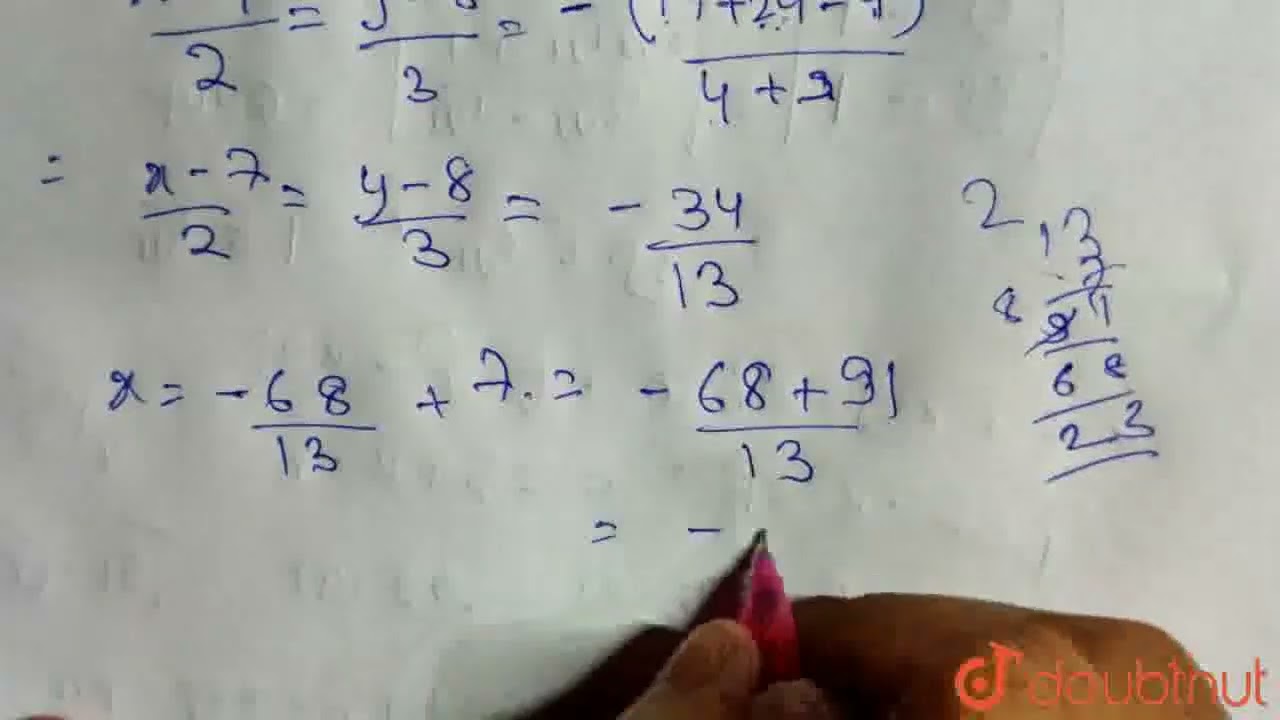 2 = 3 = - 4 + 9
= x - 7 / 2 = y - 8 / 3 = - 34 / 13
x = - 68 / 13 + 7. = - 68 + 91 / 13
= -
2
13
8
68
23
doubtnut